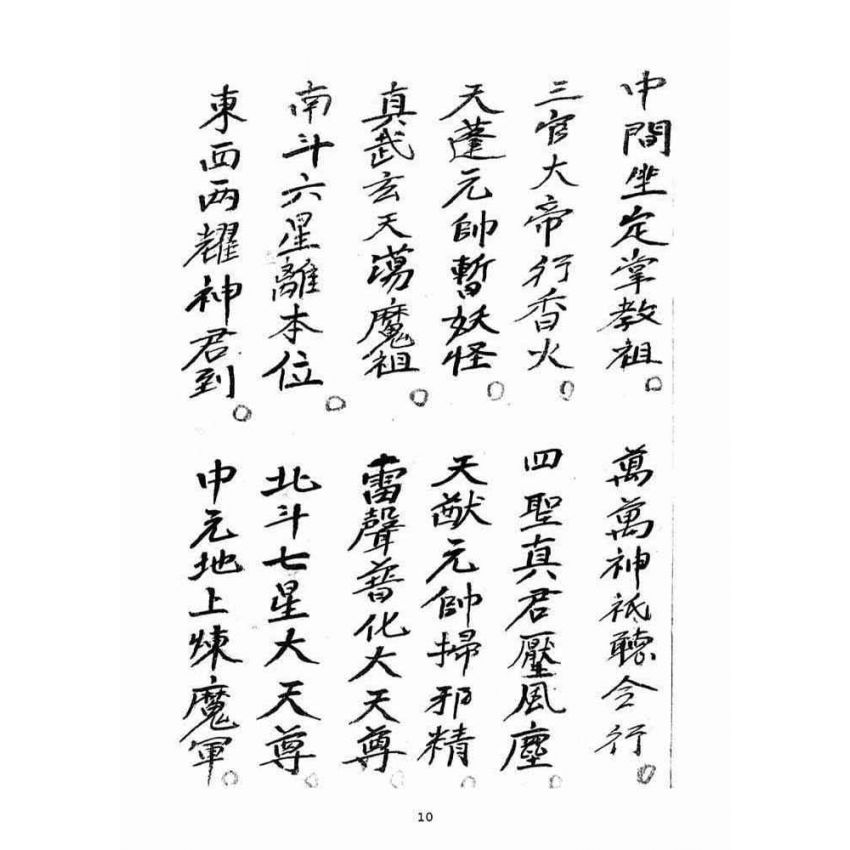 中間坐定掌教祖。
萬萬神祇聽令行。
三官大帝行香火。
四聖真君壓風塵。
天蓬元帥暫妖怪。
天猷元帥掃邪精。
真武玄天蕩魔祖。
雷聲普化大天尊。
南斗六星離本位。
北斗七星大天尊。
東西兩耀神君到。
中元地上煉魔軍。
10